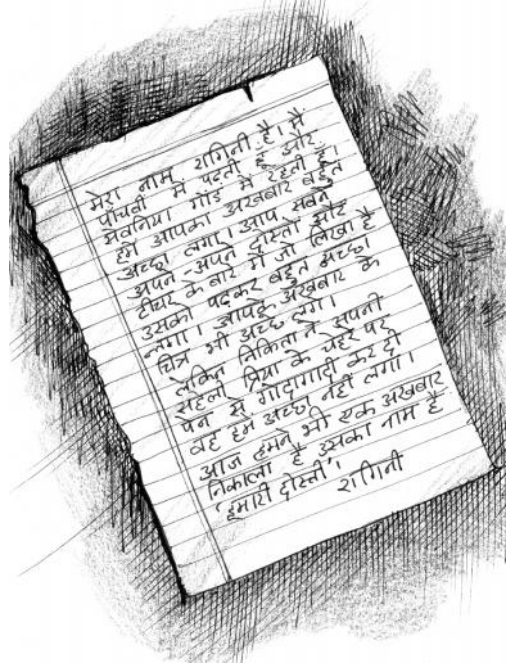 मेरा नाम रागिनी है। मैं
पाँचवी में पढ़ती हूँ और
मेवनिया गोंड में रहती हूँ।
हमें आपका अखबार बहुत
अच्छा लगा। आप सबने
अपने-अपने दोस्तों और
टीचर के बारे में जो लिखा है
उसको पढ़कर बहुत अच्छा
लगा। आपके अखबार के
चित्र भी अच्छे लगे।
लेकिन निकिता ने अपनी
सहेली प्रिया के चेहरे पर
पेन से गोदागादी कर दी
वह हमें अच्छा नहीं लगा।
आज हमने भी एक अखबार
निकाला है उसका नाम है
'हमारी दोस्ती'।
रागिनी